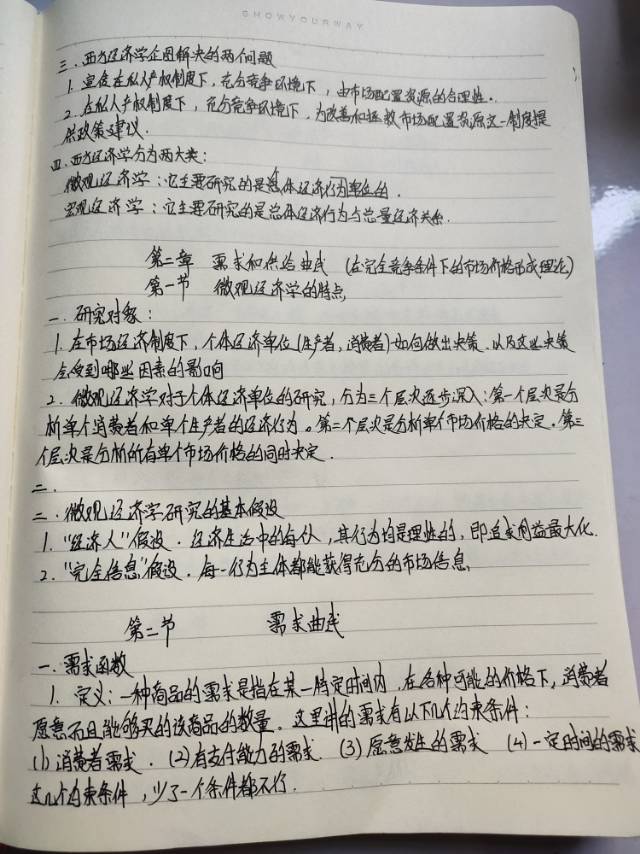 SHOWYOURWAY
三．西方经济学企图解决的两个问题
1. 宣传在私人产权制度下，充分竞争环境下，由市场配置资源的合理性．
2. 在私人产权制度下，充分竞争环境下，为改善和拯救市场配置资源这一制度提
供政策建议．
四．西方经济学分为两大类：
微观经济学：它主要研究的是个体经济行为单位的．
宏观经济学：它主要研究的是总体经济行为与总量经济关系．
第二章 需求和供给曲线 （在完全竞争条件下的市场价格形成理论）
第一节 微观经济学的特点
一．研究对象：
1. 在市场经济制度下，个体经济单位（生产者，消费者）如何做出决策．以及这些决策
会受到哪些因素的影响
2. 微观经济学对于个体经济单位的研究，分为三个层次逐步深入：第一个层次是分
析单个消费者和单个生产者的经济行为。第二个层次是分析单个市场价格的决定。第三
个层次是分析所有单个市场价格的同时决定．
二．
二．微观经济学研究的基本假设
1. “经济人”假设．经济生活中的每个人，其行为均是理性的，即追求利益最大化．
2. “完全信息”假设．每一行为主体都能获得充分的市场信息．
第二节 需求曲线
一．需求函数
1. 定义：一种商品的需求是指在某一特定时间内，在各种可能的价格下，消费者
愿意而且能够买的该商品的数量．这里讲的需求有以下几个约束条件：
(1) 消费者需求．(2) 有支付能力的需求 (3) 愿意发生的需求 (4) 一定时间的需求
这几个约束条件，少了一个条件都不行．